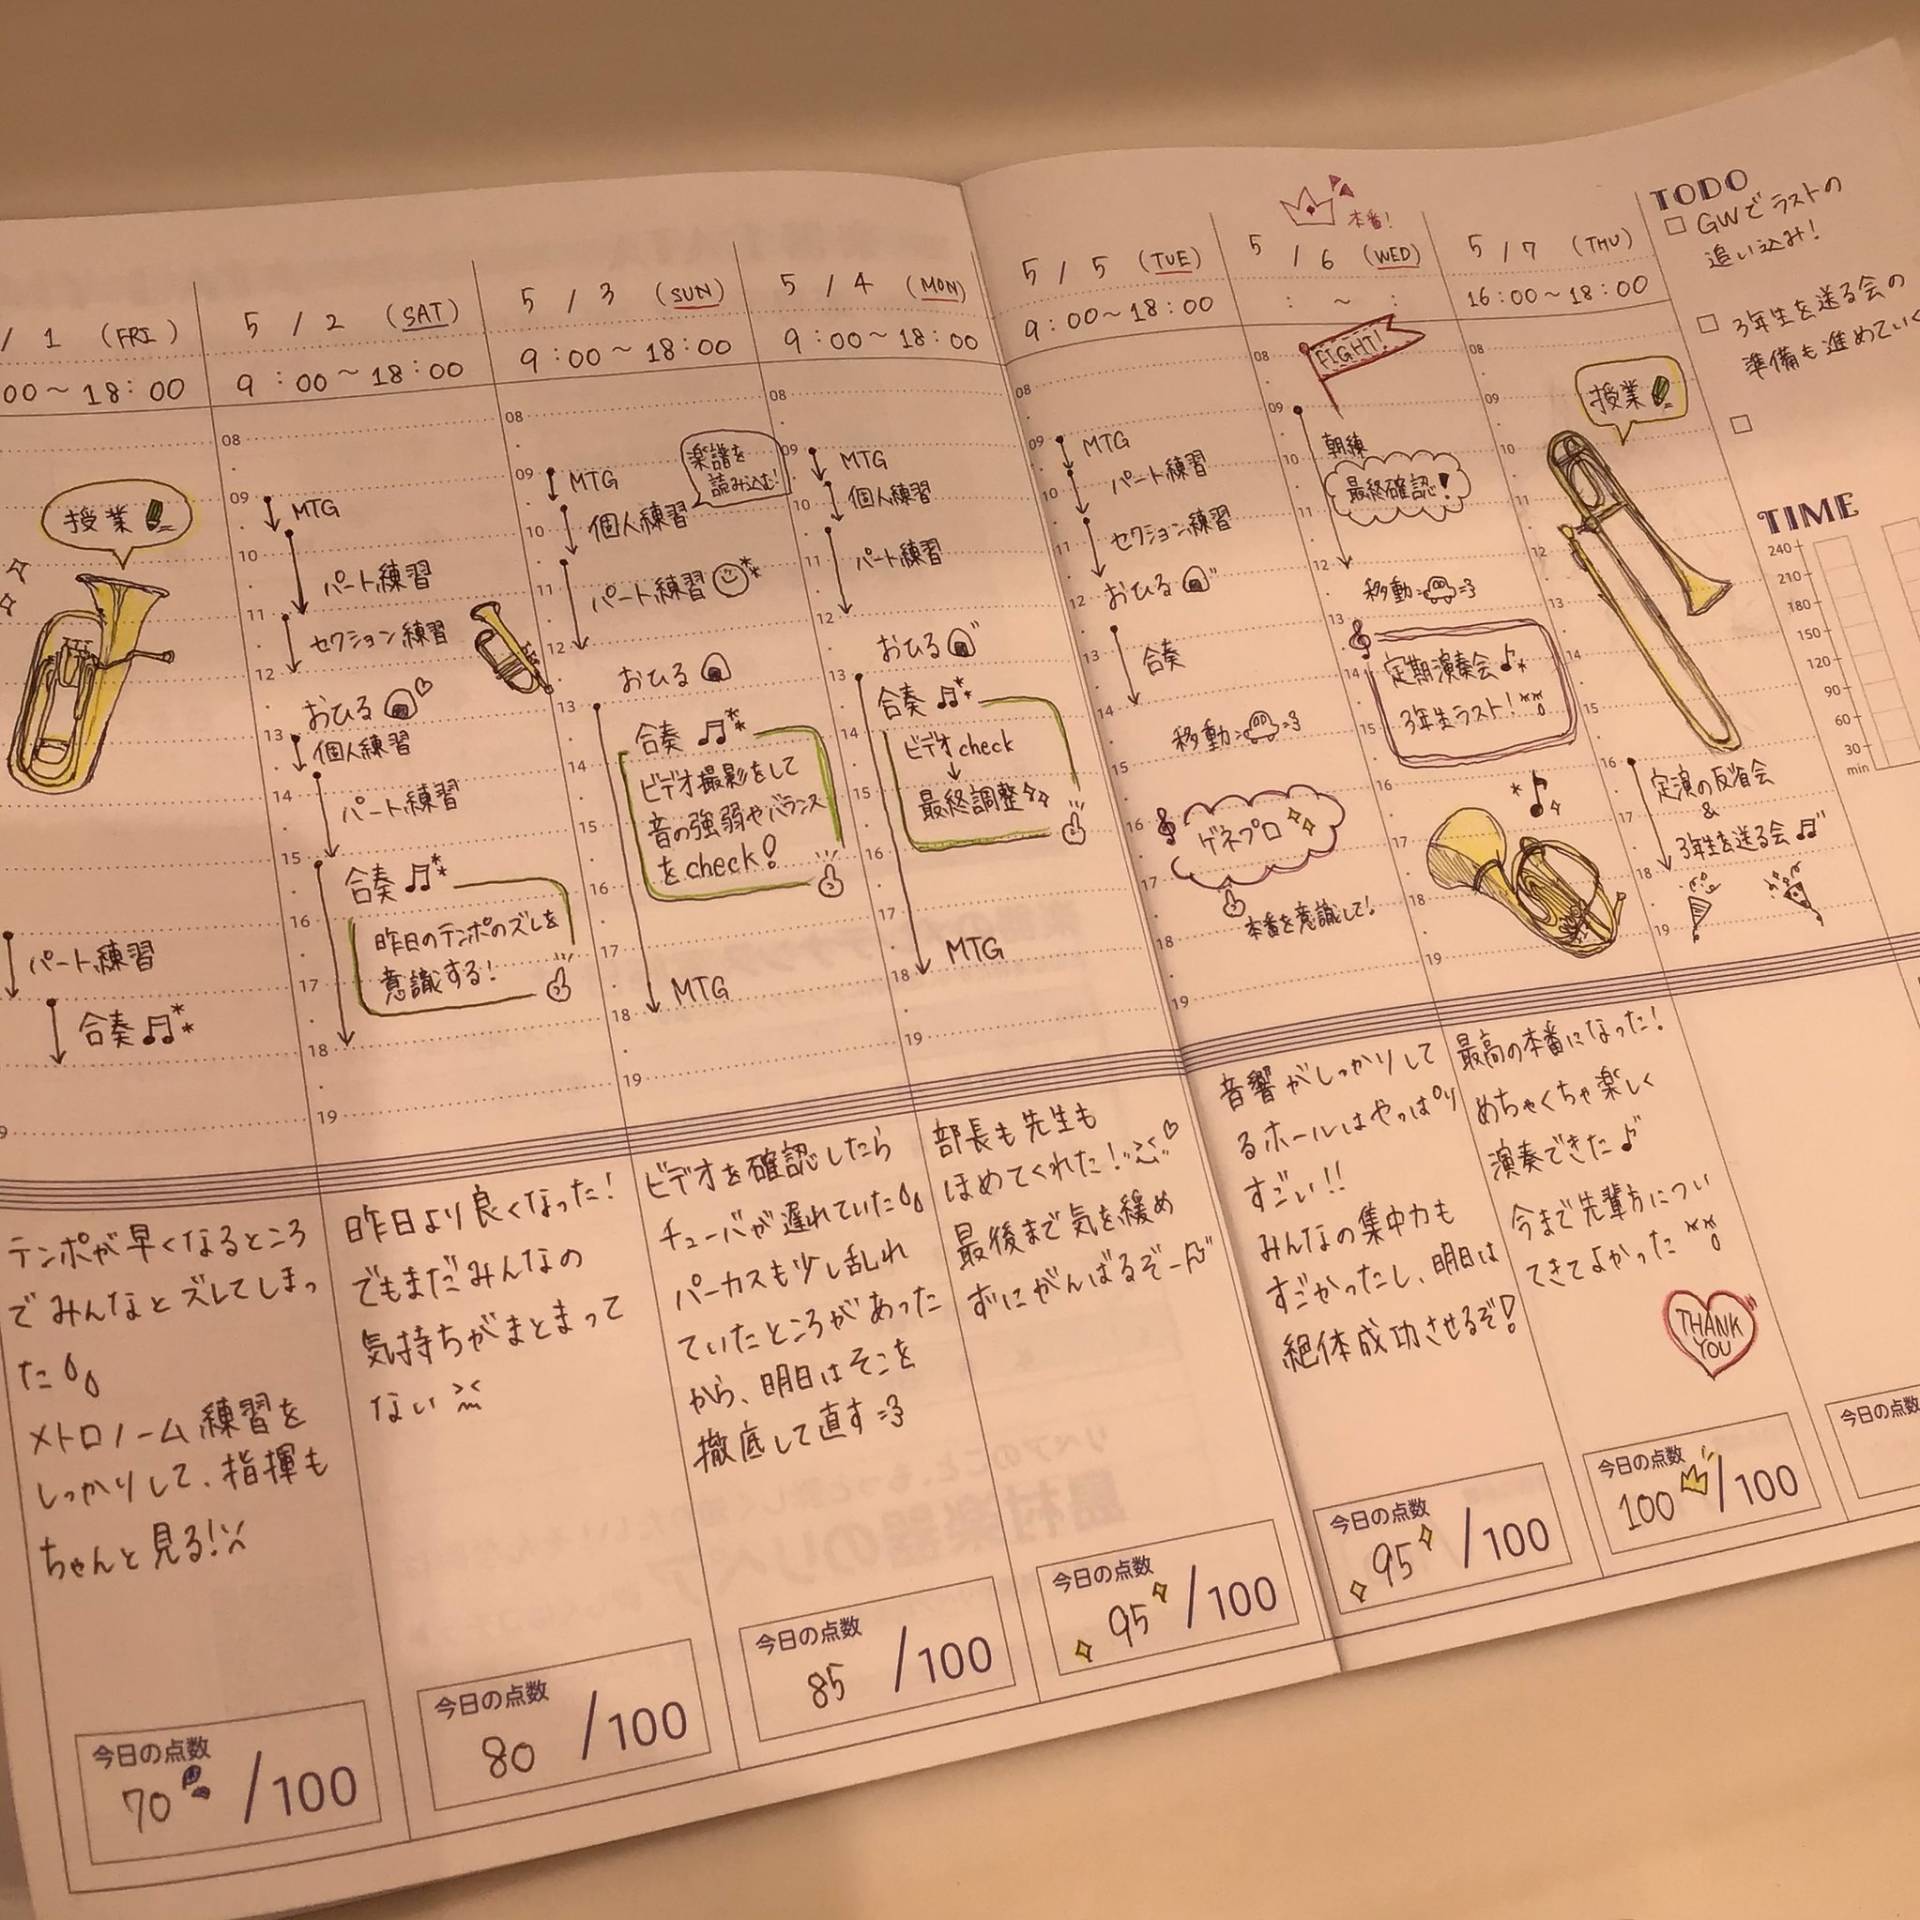 / 1 (FRI)
00～18:00
授業
パート練習
合奏
テンポが早くなるところ
でみんなとズレてしまっ
た
メトロノーム練習を
しっかりして、指揮も
ちゃんと見る!
今日の点数
70 /100
5 / 2 (SAT)
9:00～18:00
08
09
10
11
12
13
14
15
16
17
18
19
MTG
パート練習
セクション練習
おひる
個人練習
パート練習
合奏
昨日のテンポのズレを
意識する!
昨日より良くなった!
でもまだみんなの
気持ちがまとまって
ない
今日の点数
80 /100
5 / 3 (SUN)
9:00～18:00
08
09
10
11
12
13
14
15
16
17
18
19
MTG
個人練習
楽譜を
読み込む!
パート練習
おひる
合奏
ビデオ撮影をして
音の強弱やバランス
をcheck!
MTG
ビデオを確認したら
チューバが遅れていた
パーカスも少し乱れ
ていたところがあった
から、明日はそこを
徹底して直す
今日の点数
85 /100
5 / 4 (MON)
9:00～18:00
08
09
10
11
12
13
14
15
16
17
18
19
MTG
個人練習
パート練習
おひる
合奏
ビデオcheck
最終調整
MTG
部長も先生も
ほめてくれた!
最後まで気を緩め
ずにがんばるぞー
今日の点数
95 /100
5 / 5 (TUE)
9:00～18:00
08
09
10
11
12
13
14
15
16
17
18
19
MTG
パート練習
セクション練習
おひる
合奏
移動
ゲネプロ
本番を意識して!
音響がしっかりして
るホールはやっぱり
すごい!!
みんなの集中力も
すごかったし、明日は
絶体成功させるぞ!
今日の点数
95 /100
本番!
5 / 6 (WED)
: ～ :
08
09
10
11
12
13
14
15
16
17
18
19
FIGHT!
朝練
最終確認!
移動
定期演奏会
3年生ラスト!
最高の本番になった!
めちゃくちゃ楽しく
演奏できた
今まで先輩方につい
てきてよかった
THANK
YOU
今日の点数
100 /100
5 / 7 (THU)
16:00～18:00
08
09
10
11
12
13
14
15
16
17
18
19
授業
定演の反省会
&
3年生を送る会
今日の点数
TODO
GWでラストの
追い込み!
3年生を送る会の
準備も進めていく
TIME
240
210
180
150
120
90
60
30
min